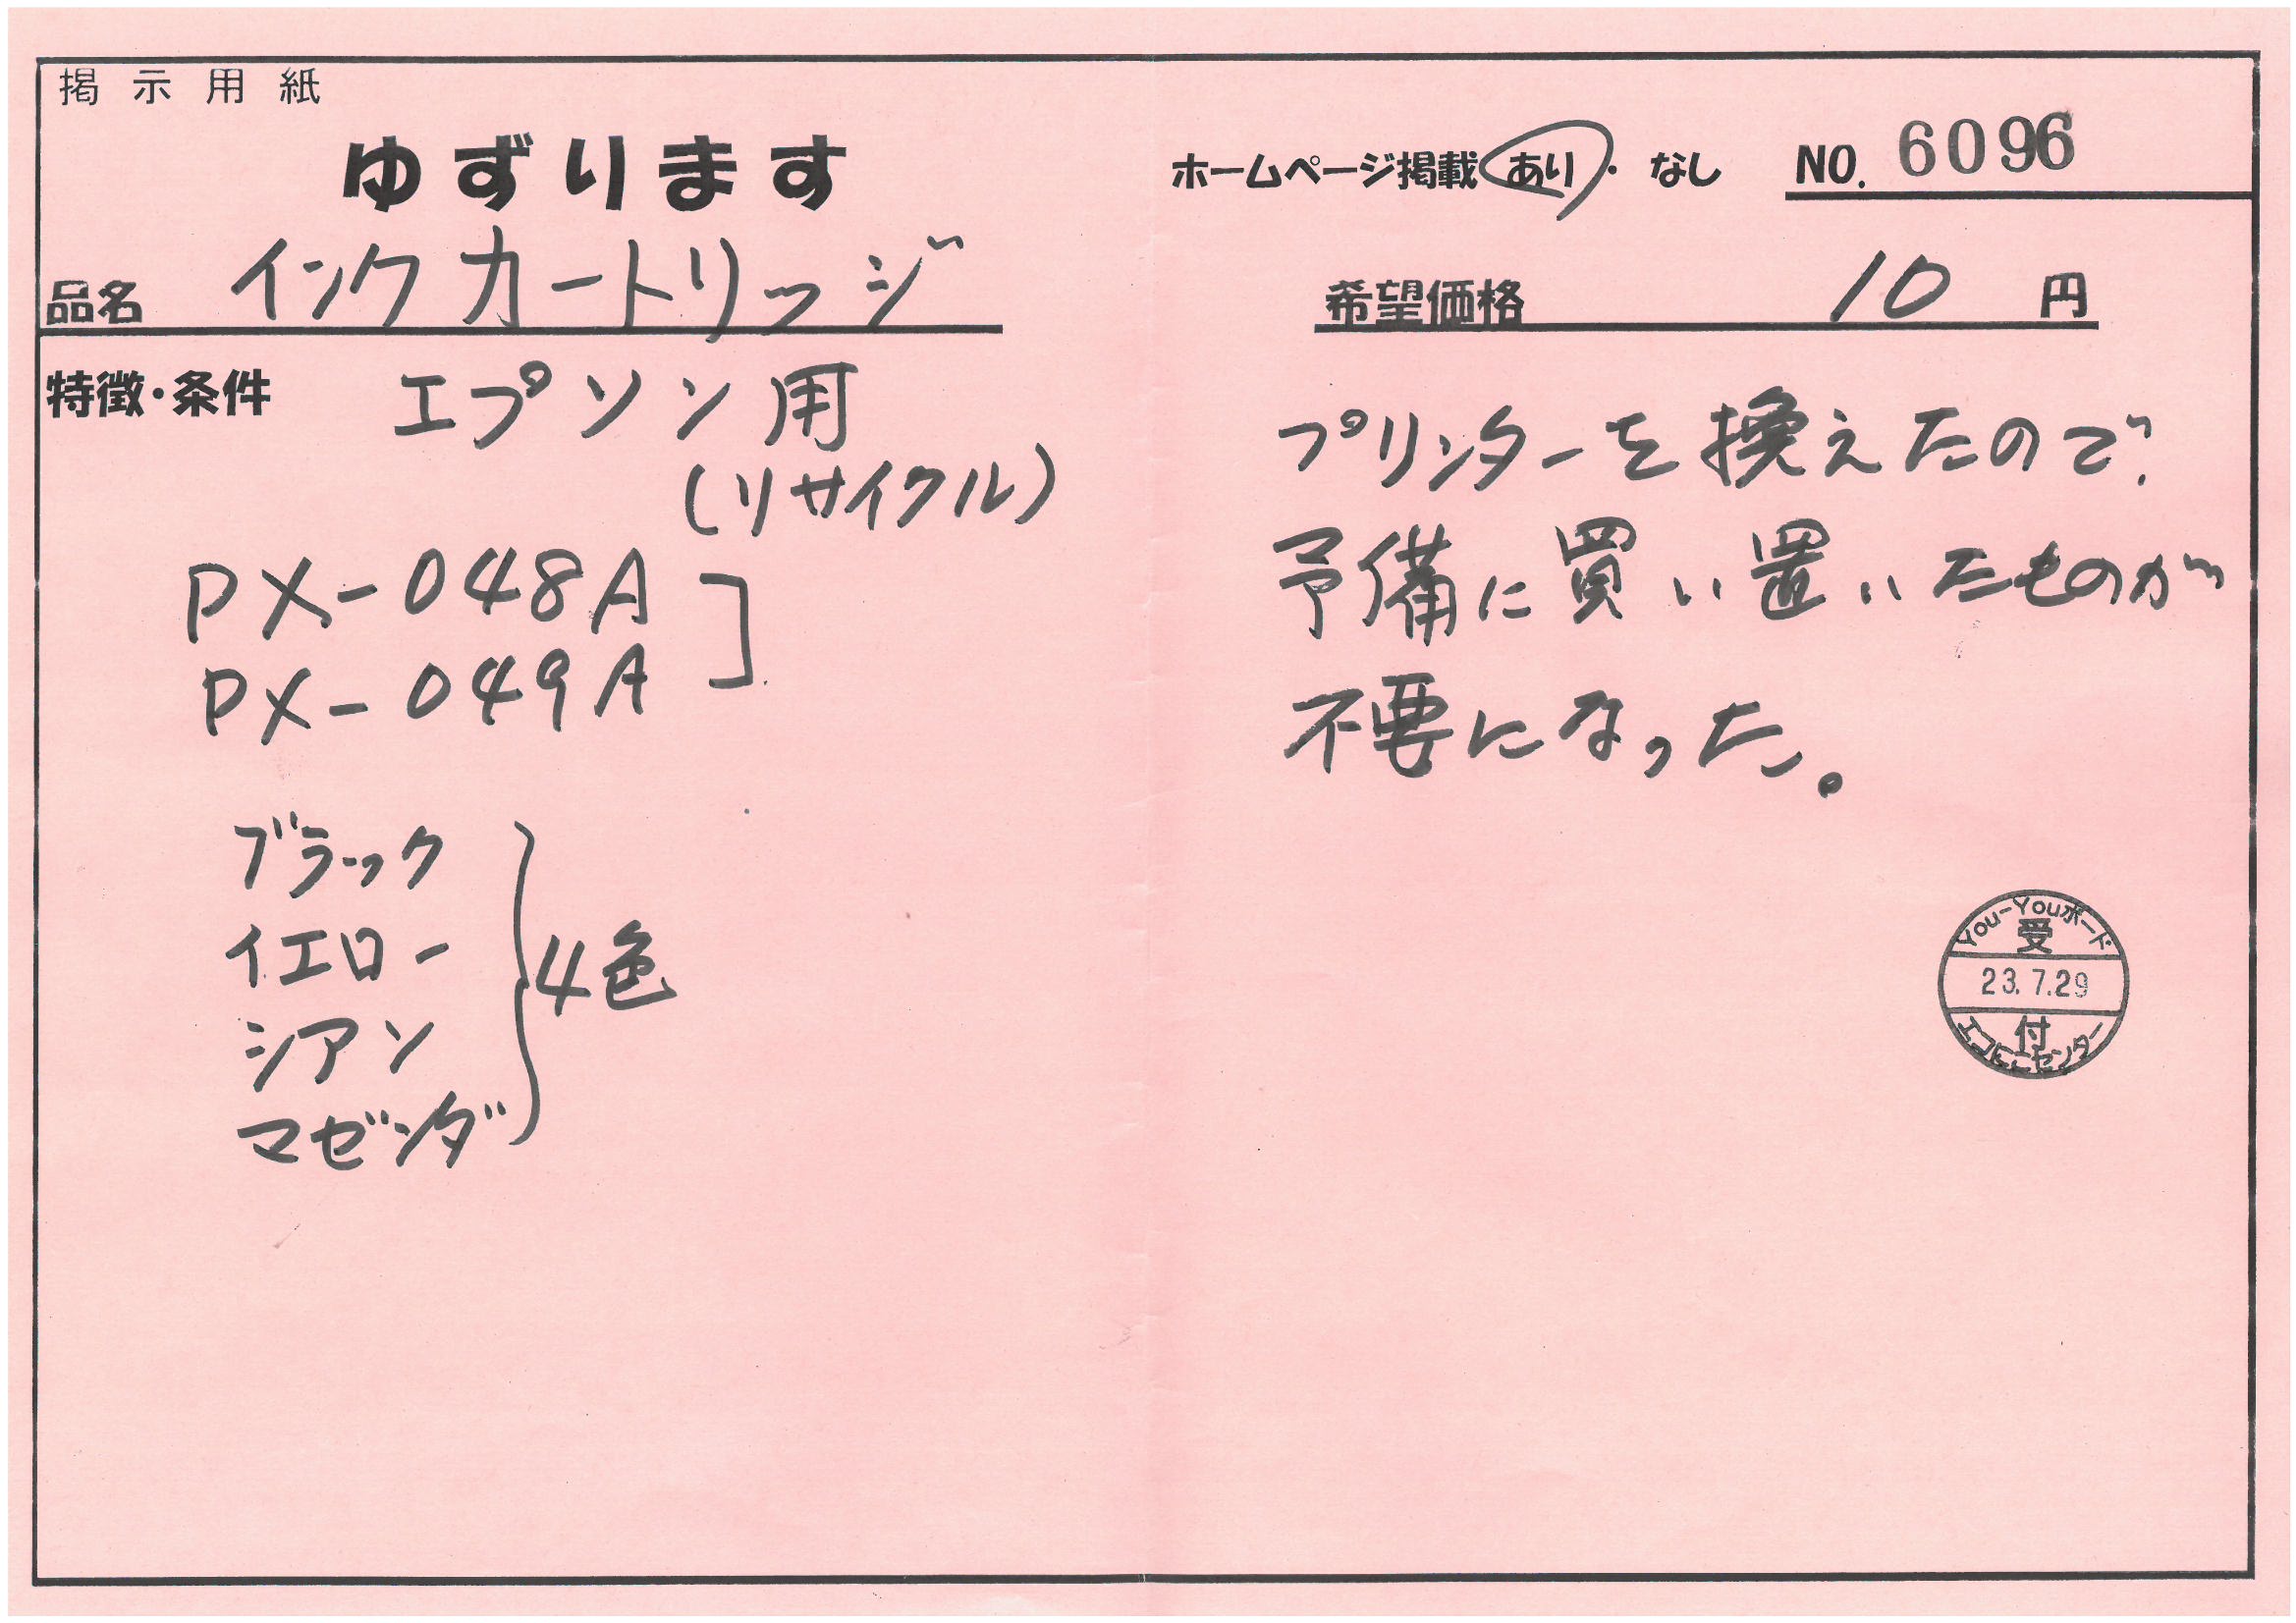 掲示用紙
ゆずります
ホームページ掲載 あり・なし NO. 6096
品名 インクカートリッジ
希望価格 10 円
特徴・条件 エプソン用
(リサイクル)
PX-048A
PX-049A
ブラック
イエロー
シアン
マゼンダ
4色
プリンターを換えたので、
予備に買い置いたものが
不要になった。
You-Youボード
受
23.7.29
付
エコにこセンター